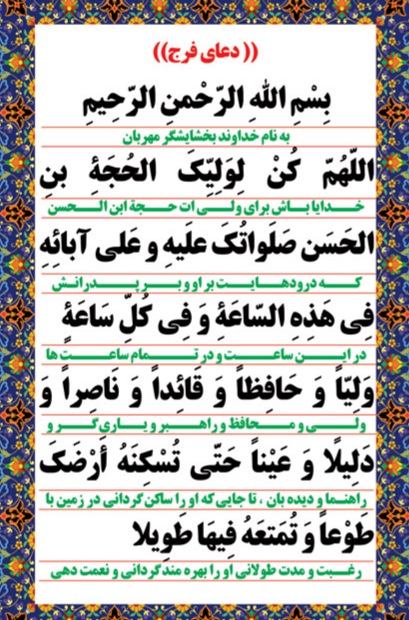 (( دعای فرج ))
بِسْمِ اللهِ الرَّحْمنِ الرَّحِیمِ
به نام خداوند بخشایشگر مهربان
اللّهُمّ كُنْ لِوَلِیِّکَ الحُجَةِ بنِ
خدایا باش برای ولی ات حجة ابن الحسن
الحَسَن صَلَواتُکَ علَیهِ و عَلی آبائِهِ
که درودهایت بر او و بر پدرانش
فِی هَذِهِ السّاعَةِ وَ فِی کُلِّ سَاعَةٍ
در این ساعت و در تمام ساعت ها
وَلِیّاً وَ حَافِظاً وَ قَائِداً وَ نَاصِراً وَ
ولی و محافظ و راهبر و یاری گر و
دَلِیلًا وَ عَیْناً حَتّی تُسْکِنَهُ أرْضَکَ
راهنما و دیده بان ، تا جایی که او را ساکن گردانی در زمین با
طَوْعاً وَ تُمَتعَهُ فِیهَا طَوِیلا
رغبت و مدت طولانی او را بهره مند گردانی و نعمت دهی